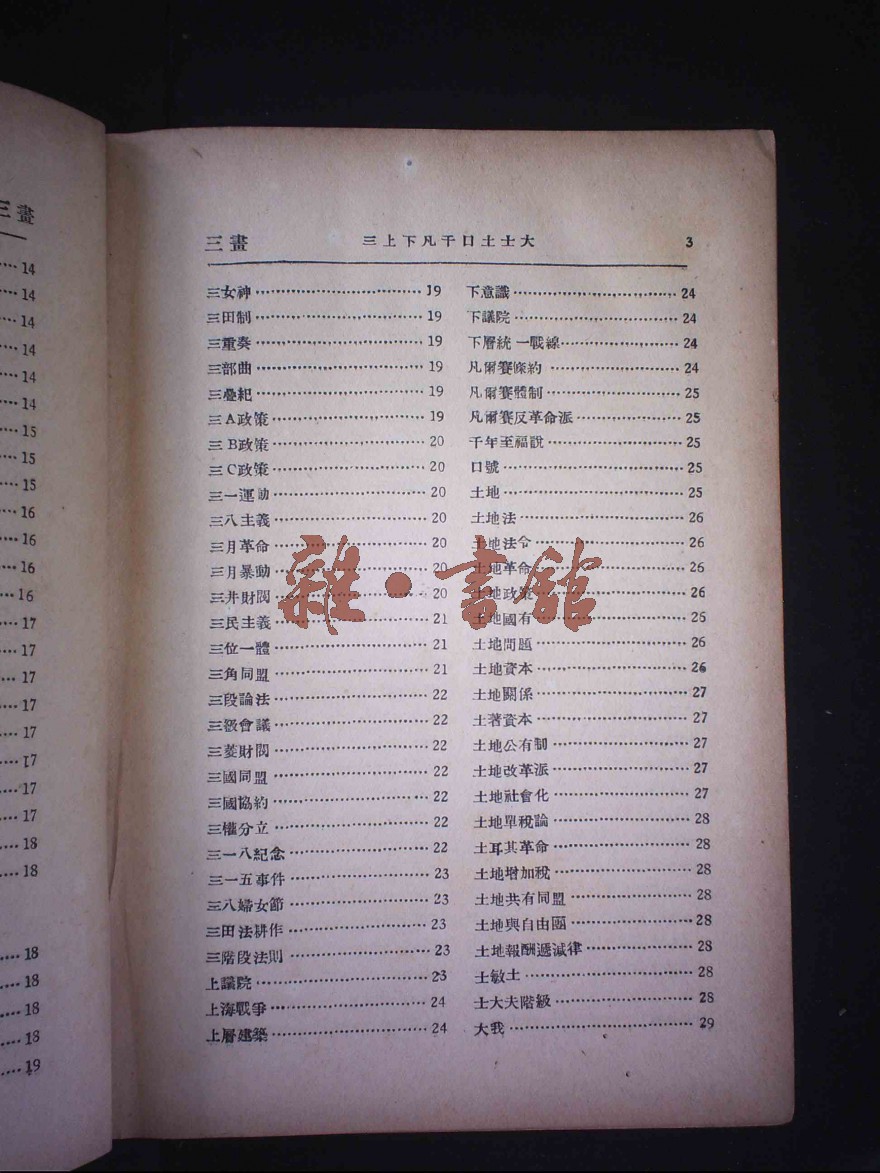 三畫
14
14
14
14
14
14
15
15
15
16
16
16
16
17
17
17
17
17
17
17
17
18
18
18
18
18
18
19
三畫 三上下凡千口土士大 3
三女神 19
三田制 19
三重奏 19
三部曲 19
三疊紀 19
三A政策 19
三B政策 20
三C政策 20
三一運動 20
三八主義 20
三月革命 20
三月暴動 20
三井財閥 20
三民主義 21
三位一體 21
三角同盟 21
三段論法 22
三級會議 22
三菱財閥 22
三國同盟 22
三國協約 22
三權分立 22
三一八紀念 22
三一五事件 23
三八婦女節 23
三田法耕作 23
三階段法則 23
上議院 23
上海戰爭 24
上層建築 24
下意識 24
下議院 24
下層統一戰線 24
凡爾賽條約 24
凡爾賽體制 25
凡爾賽反革命派 25
千年至福說 25
口號 25
土地 25
土地法 26
土地法令 26
土地革命 26
土地政策 26
土地國有 25
土地問題 26
土地資本 26
土地關係 27
土著資本 27
土地公有制 27
土地改革派 27
土地社會化 27
土地單稅論 28
土耳其革命 28
土地增加稅 28
土地共有同盟 28
土地與自由團 28
土地報酬遞減律 28
士敏土 28
士大夫階級 28
大我 29
雜·書館